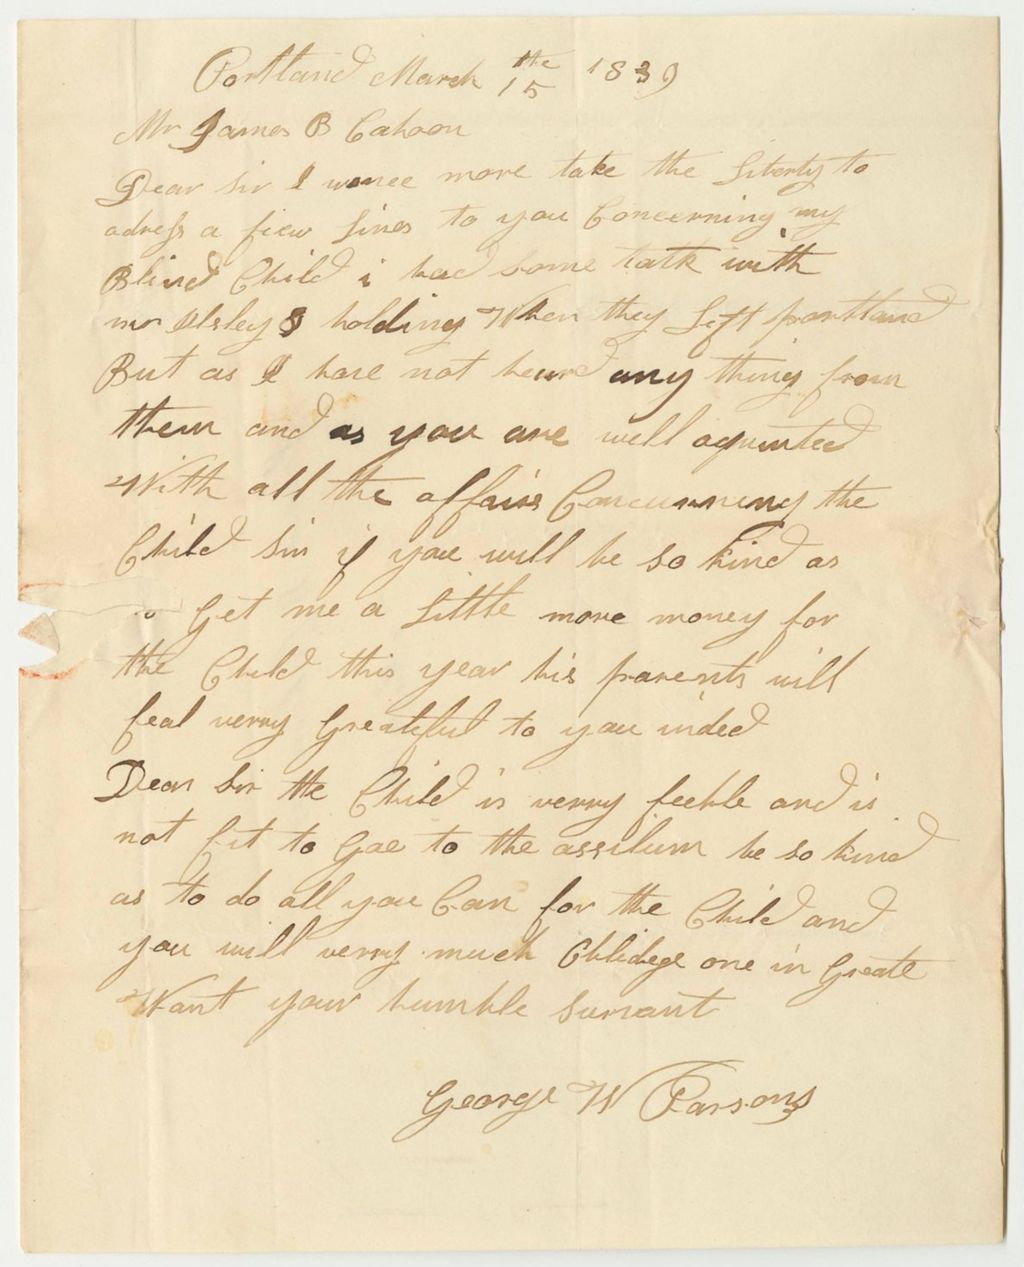 Portland March 15 the 1839
Mr James B Cahoon
Dear Sir I wonce more take the Liberty to
adress a fiew Lines to you Concerning my
Blind Child i had Some talk with
mr Ilsley & holding When they Left portland
But as I have not heard any thing from
them and as you are well aquinted
With all the affairs Concurning the
Child Sir if you will be so kind as
to Get me a Little more money for
the Child this year his parents will
feal verry Greateful to you indeed
Dear Sir the Child is verry feeble and is
not fit to Goe to the assilum be so kind
as to do all you Can for the Child and
you will verry much Oblidege one in Greate
Want your humble Survant
George W Parsons